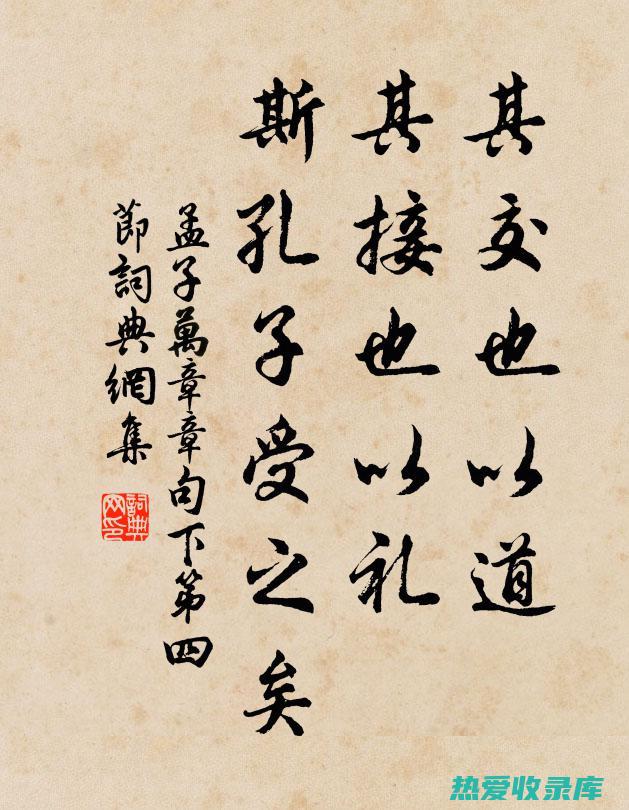 其交也以道
其接也以礼
斯孔子受之矣
孟子萬章章句下第四
節詞典網集
詞典
网印
热爱收录库